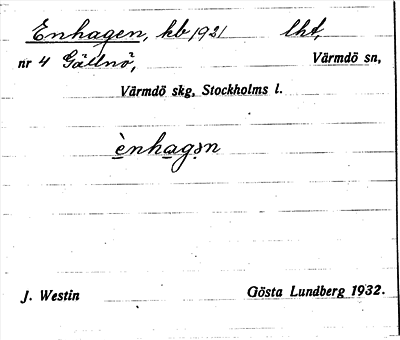 Enhagen, kb 1921 lht,
nr 4 Gällnö, Värmdö sn,
Värmdö skg, Stockholms l.
ènhagən
J. Westin Gösta Lundberg 1932.